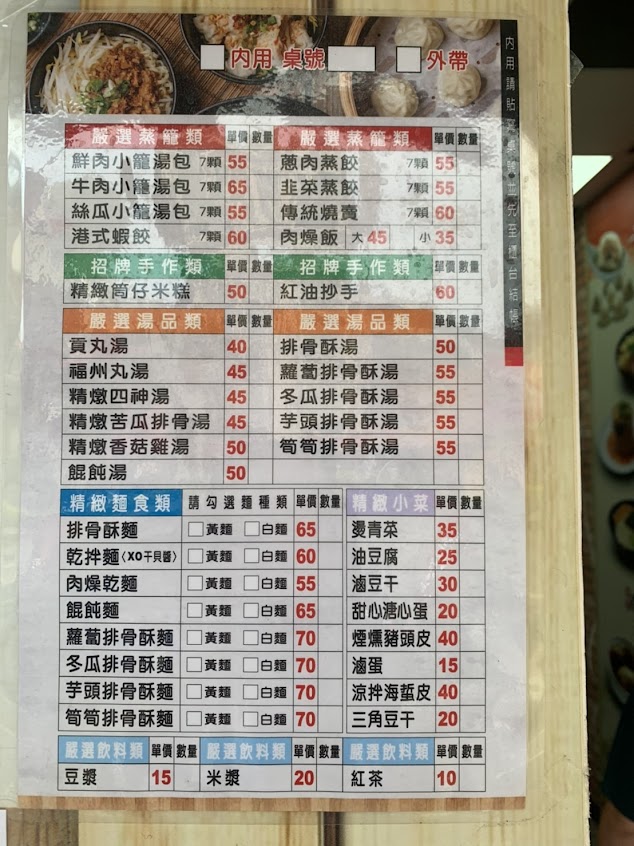 內用 桌號 外帶
嚴選蒸籠類 單價 數量 嚴選蒸籠類 單價 數量
鮮肉小籠湯包 7顆 55 蔥肉蒸餃 7顆 55
牛肉小籠湯包 7顆 65 韭菜蒸餃 7顆 55
絲瓜小籠湯包 7顆 55 傳統燒賣 7顆 60
港式蝦餃 7顆 60 肉燥飯 大 45 小 35
招牌手作類 單價 數量 招牌手作類 單價 數量
精緻筒仔米糕 50 紅油抄手 60
嚴選湯品類 單價 數量 嚴選湯品類 單價 數量
貢丸湯 40 排骨酥湯 50
福州丸湯 45 蘿蔔排骨酥湯 55
精燉四神湯 45 冬瓜排骨酥湯 55
精燉苦瓜排骨湯 45 芋頭排骨酥湯 55
精燉香菇雞湯 50 筍筍排骨酥湯 55
餛飩湯 50
精緻麵食類 請勾選麵種類 單價 數量 精緻小菜 單價 數量
排骨酥麵 黃麵 白麵 65 燙青菜 35
乾拌麵(XO干貝醬) 黃麵 白麵 60 油豆腐 25
肉燥乾麵 黃麵 白麵 55 滷豆干 30
餛飩麵 黃麵 白麵 65 甜心溏心蛋 20
蘿蔔排骨酥麵 黃麵 白麵 70 煙燻豬頭皮 40
冬瓜排骨酥麵 黃麵 白麵 70 滷蛋 15
芋頭排骨酥麵 黃麵 白麵 70 涼拌海蜇皮 40
筍筍排骨酥麵 黃麵 白麵 70 三角豆干 20
嚴選飲料類 單價 數量 嚴選飲料類 單價 數量 嚴選飲料類 單價 數量
豆漿 15 米漿 20 紅茶 10
內用請貼寫桌號 並先至櫃台結帳